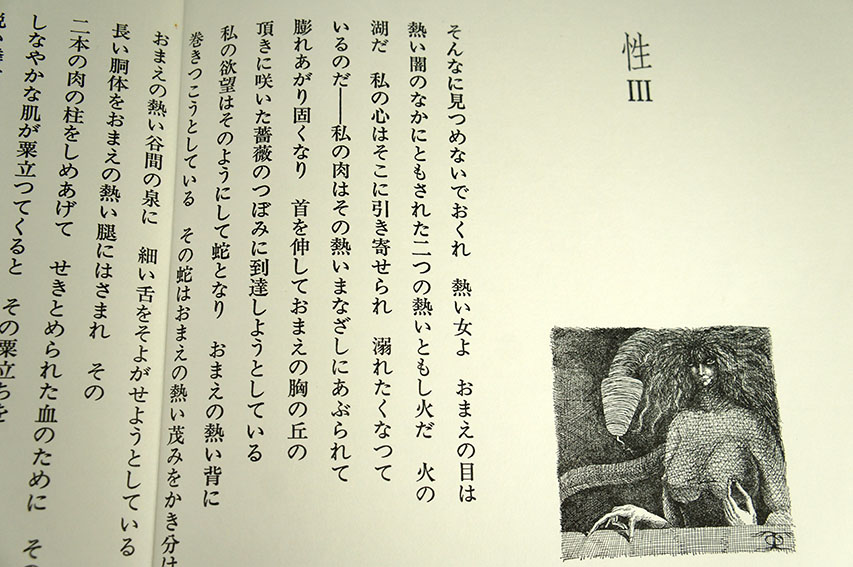 性
III
そんなに見つめないでおくれ　熱い女よ　おまえの目は
熱い闇のなかにともされた二つの熱いともし火だ　火の
湖だ　私の心はそこに引き寄せられ　溺れたくなつて
いるのだ――私の肉はその熱いまなざしにあぶられて
膨れあがり固くなり　首を伸しておまえの胸の丘の
頂きに咲いた薔薇のつぼみに到達しようとしている
私の欲望はそのようにして蛇となり　おまえの熱い背に
巻きつこうとしている　その蛇はおまえの熱い茂みをかき分け
おまえの熱い谷間の泉に　細い舌をそよがせようとしている
長い胴体をおまえの熱い腿にはさまれ　その
二本の肉の柱をしめあげて　せきとめられた血のために　そ
しなやかな肌が粟立つてくると　その粟立ちを